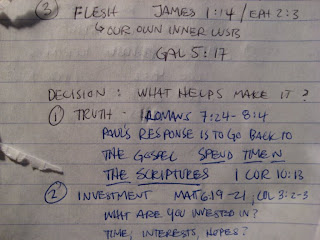 ③ FLESH JAMES 1:14 / EPH 2:3
↳ OUR OWN INNER LUSB
GAL 5:17
DECISION: WHAT HELPS MAKE IT?
① TRUTH - ROMANS 7:24-8:4
PAUL'S RESPONSE IS TO GO BACK TO
THE GOSPEL SPEND TIME IN
THE SCRIPTURES 1 COR 10:13
② INVESTMENT MAT 6:19-21, COL 3:2-3
WHAT ARE YOU INVESTED IN?
TIME, INTERESTS, HOPES?